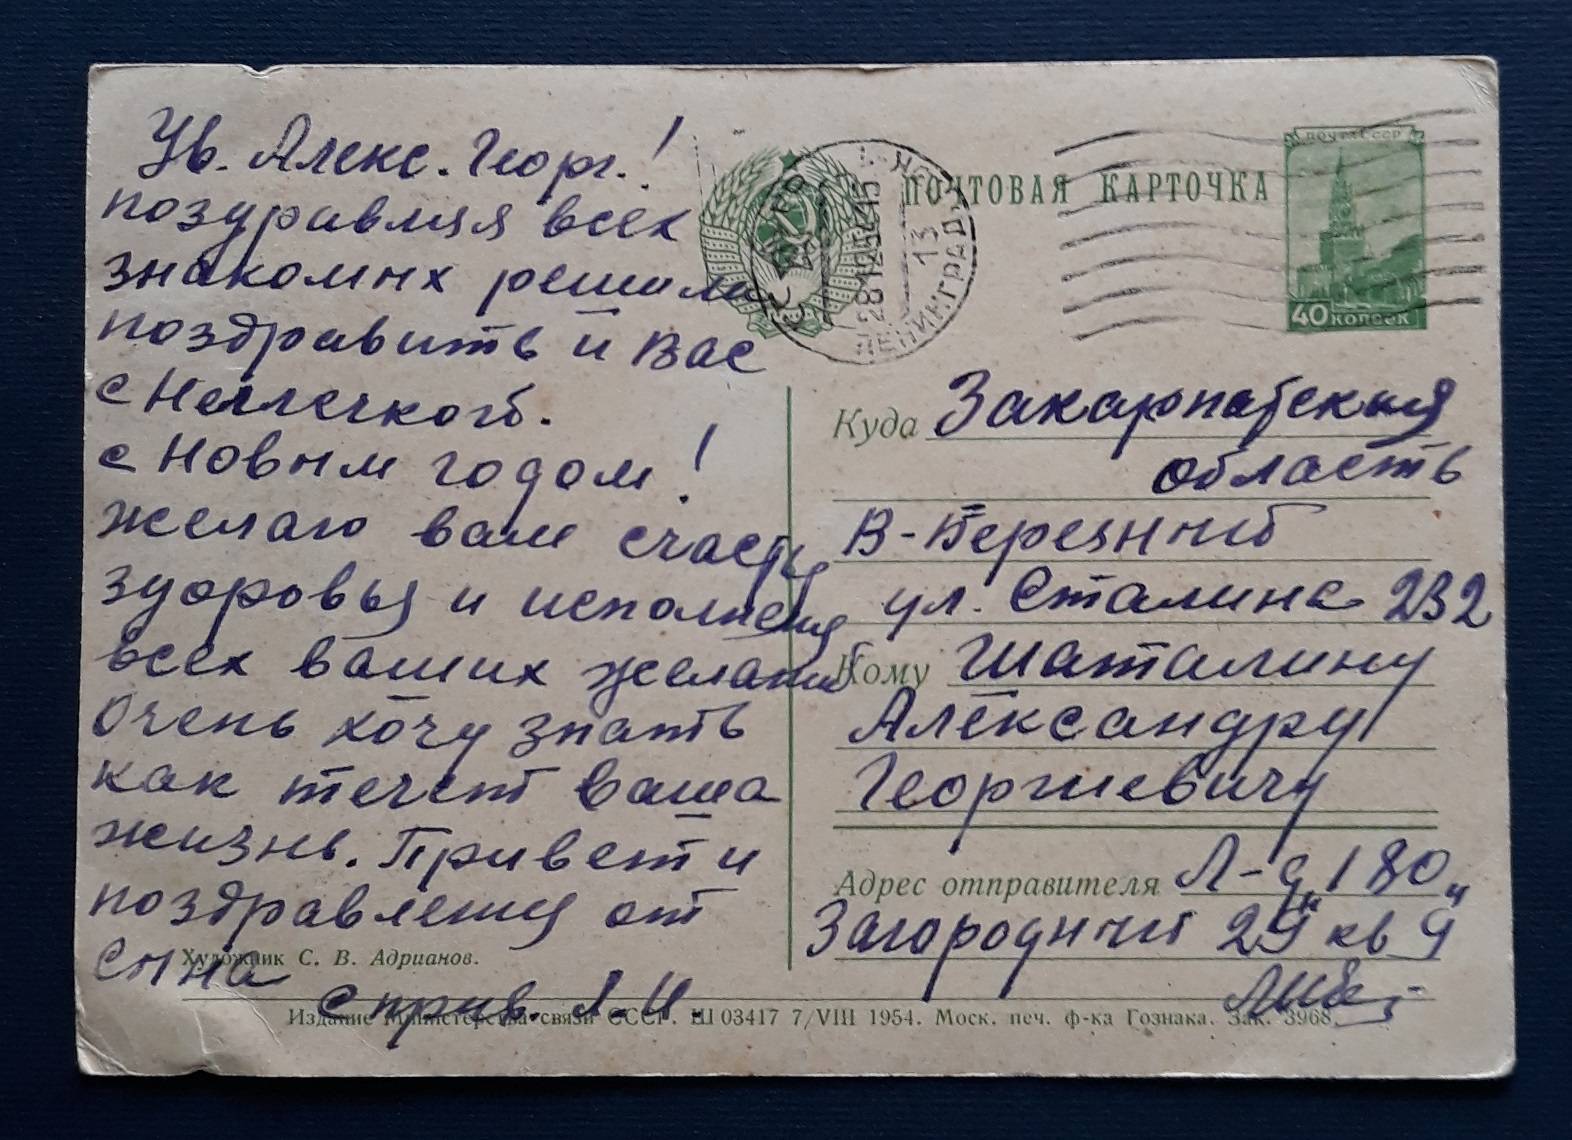 Ув. Алекс. Георг.!
поздравляя всех
знакомых решили
поздравить и Вас
с
с Новым годом!
желаю вам счастья
здоровья и исполнения
всех ваших желаний
Очень хочу знать
как течет ваша
жизнь. Привет и
поздравления от
сына
с прив. Л. И.
Художник С. В. Адрианов.
Издание Министерства связи СССР. Ш 03417 7/VIII 1954. Моск. печ. ф-ка Гознака. Зак. 3968
ПОЧТОВАЯ КАРТОЧКА
ПОЧТА СССР
40 КОПЕЕК
ЛЕНИНГРАД
28 12 54 15
13
Куда Закарпатская
область
В-Березный
ул. Сталина 232
Кому Шаталину
Александру
Георгиевичу
Адрес отправителя Л-д 180
Загородный 29 кв 9